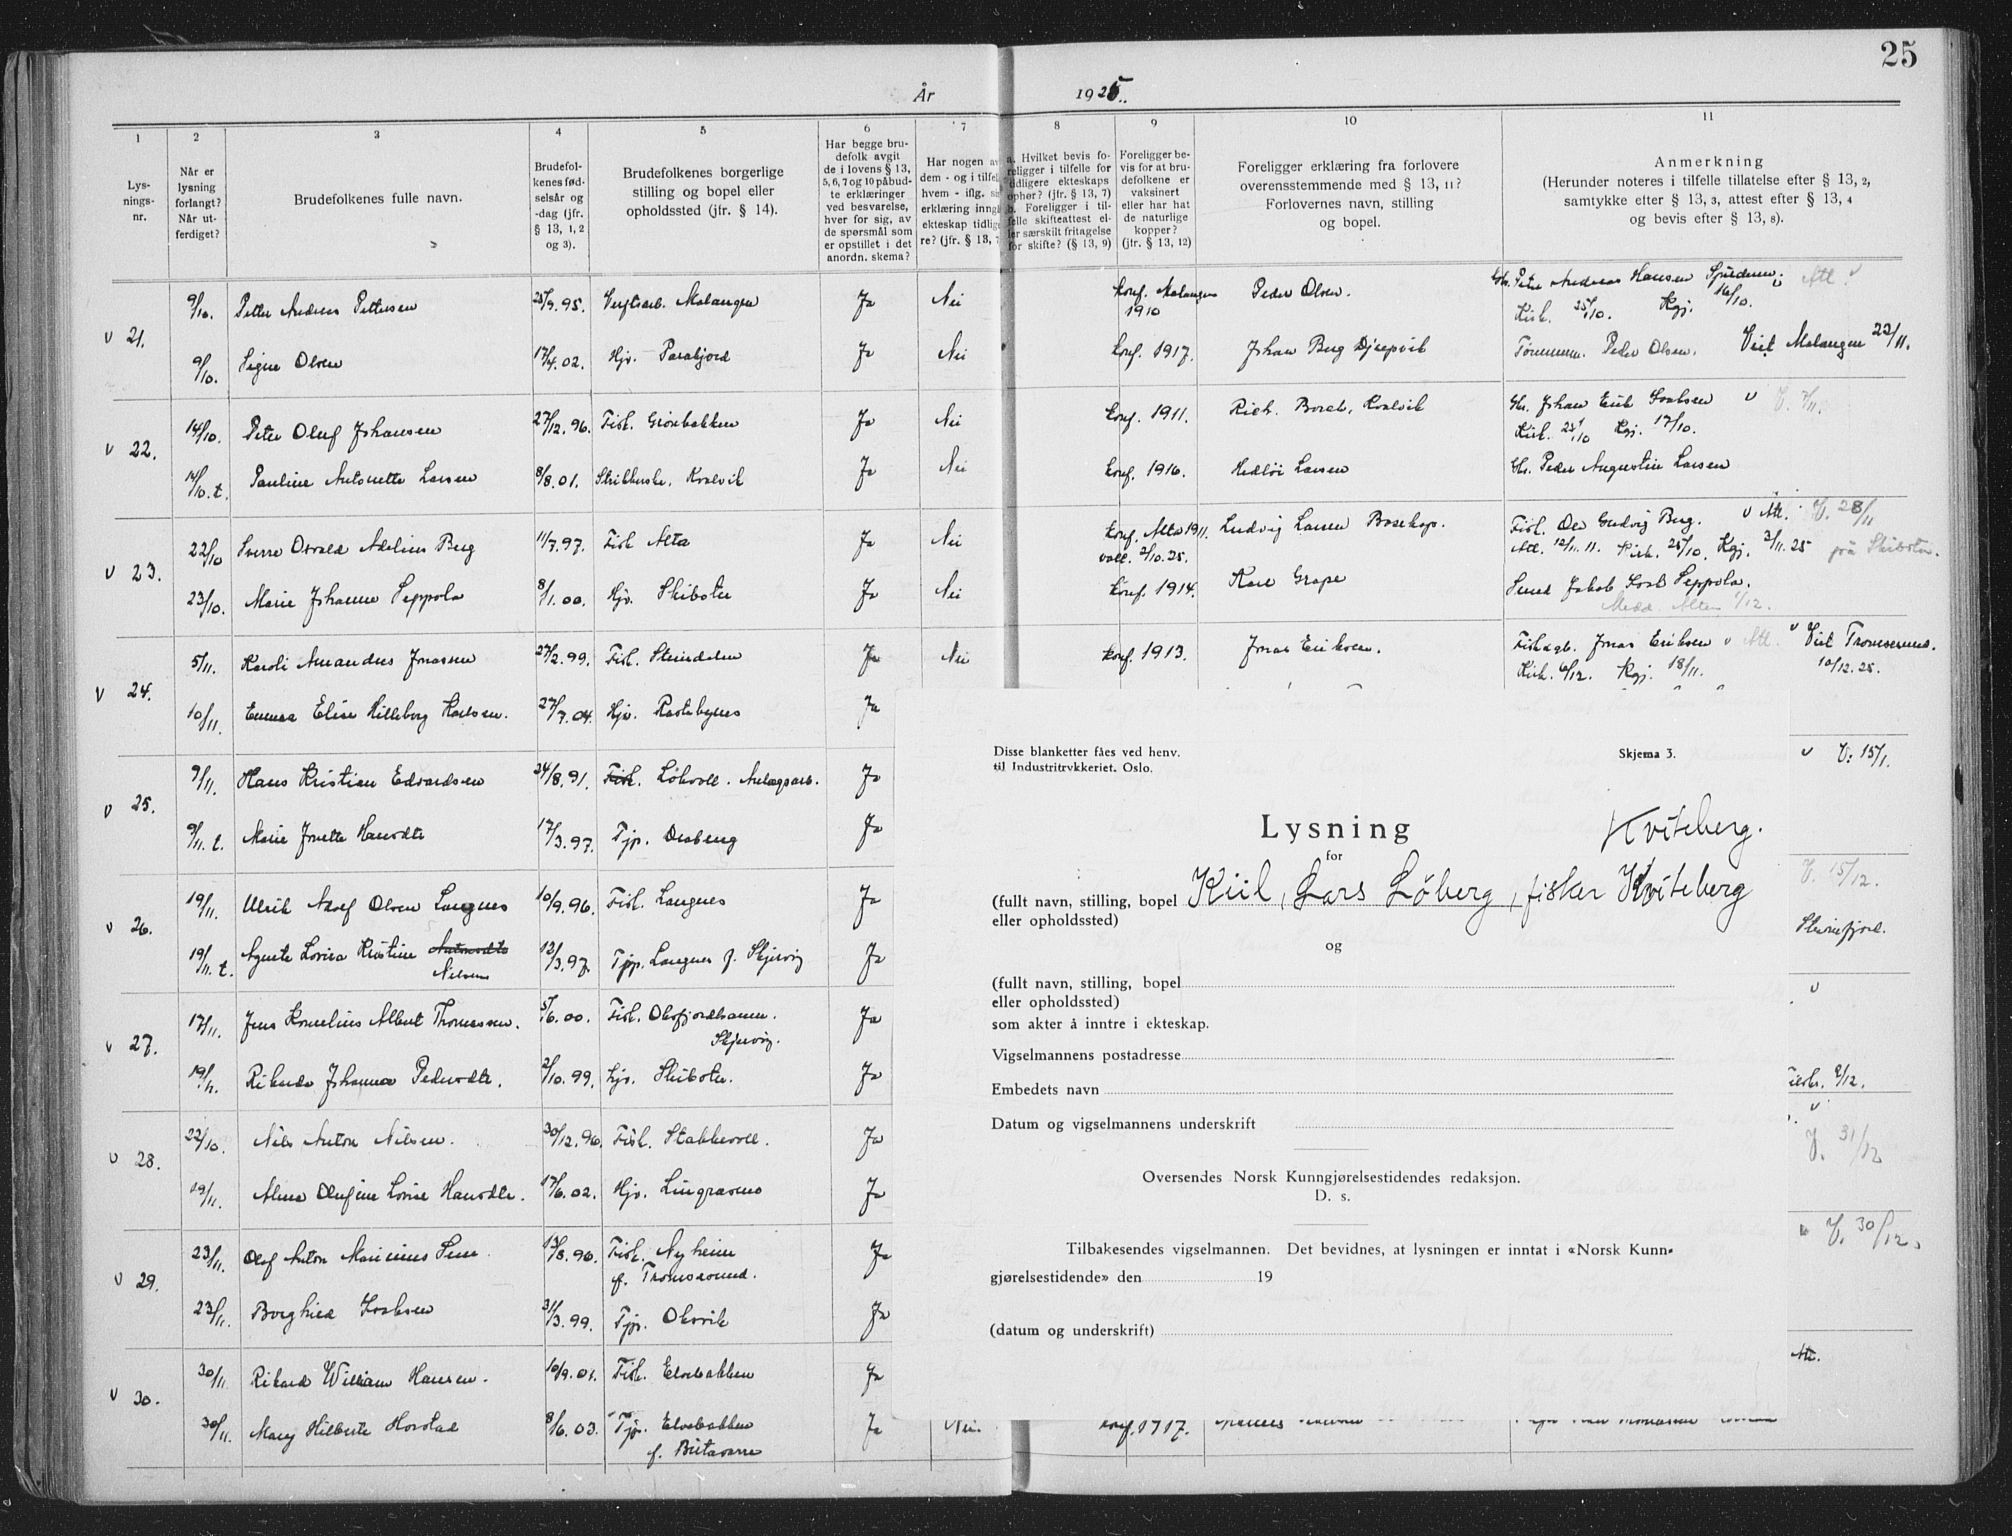 25
År 1925.
1 2 3 4 5 6 7 8 9 10 11
Lys-
nings-
nr.
Når er
lysning
forlangt?
Når ut-
ferdiget?
Brudefolkenes fulle navn.
Brudefol-
kenes fød-
selsår og
-dag (jfr.
§ 13, 1, 2
og 3).
Brudefolkenes borgerlige
stilling og bopel eller
opholdssted (jfr. § 14).
Har begge bru-
defolk avgit
de i lovens § 13,
5, 6, 7 og 10 påbud-
te erklæringer
ved besvarelse,
hver for sig, av
de spørsmål som
er opstillet i det
anordn. skema?
Har nogen av
dem - og i tilfel
hvem - iflg. si
erklæring inngå
ekteskap tidlig
re? (jfr. § 13, 7
a. Hvilket bevis fo-
religger i tilfelle for
tidligere ekteskaps
ophør? (jfr. § 13, 7)
b. Foreligger i til-
felle skifteattest el-
ler særskilt fritagelse
for skifte? (§ 13, 9)
Foreligger be-
vis for at bru-
defolkene er
vaksinert
eller har hat
de naturlige
kopper?
(jfr. § 13, 12)
Foreligger erklæring fra forlovere
overensstemmende med § 13, 11?
Forlovernes navn, stilling
og bopel.
Anmerkning
(Herunder noteres i tilfelle tillatelse efter § 13, 2,
samtykke efter § 13, 3, attest efter § 13, 4
og bevis efter § 13, 8).
v 21. 9/10. Petter Andreas Pettersen 25/9.95. Malangen Ja Nei Konf. Malangen 1910 Peder Olsen. Petter Andreas Hansen
Kirk. 25/10. Kgj. 16/10.
9/10. Signe Olsen 17/4.02. Hjv. Ja Nei Konf. 1917. Johan Berg Djupvik Peder Olsen. Viet Malangen 22/11.
v 22. 14/10. Peter Oluf Johansen 27/12.96. Fisk. Ja Nei Konf. 1911. Johan Erik
Kirk. Kgj. 17/10.
14/10.t. Pauline Antonette Larsen 8/8.01. Ja Nei Konf. 1916. Larsen Peder Augustin Larsen
v 23. 22/10 Sverre Osvald Adelius Berg 11/7.97. Fisk Alta Ja Nei Konf. Alta 1911. Ludvig Larsen Bosekop. Fisk. Ole Ludvig Berg. v Att. V. 28/11
Att. 12/11.11. Kirk. 25/10. Kgj. 2/11.25 på Skibotn.
23/10. Marie Johanne Seppola 8/1.00. Hjv. Skibotn Ja Nei Konf. 1914. Karl Grape Jakob Seppola.
Medd. Alten 1/12.
v 24. 5/11. Karoli Amandus Jonassen 27/2.99. Fisk. Steindalen Ja Nei Konf. 1913. Jonas Eriksen. Jonas Eriksen v Att. v Viet Tromsøsund.
Kirk. 6/12. Kgj. 18/11. 10/12.25.
10/11. Emma Elise Hilleborg Karlsen. 27/7.04. Hjv. Rastebynes Ja
v 25. 9/11. Hans Kristian Edvardsen 24/8.91. Fisk. Løkvoll. Anlægsarb. Ja v V. 15/1.
9/11.t. Marie 17/3.97. Tjp. Ja
v 26. 19/11. Ulrik Adolf Olsen Langnes 10/9.96. Fisk. Langnes Ja V. 15/12.
19/11.t. Agnete Lovisa Kristine Antonsdtr Nilsen 12/3.97. Tjp. Langnes f. Skjervøy Ja
v 27. 17/11. Jens Kornelius Albert Thomassen. 5/6.00. Fisk. Oksfjordhamn. Skjervøy. Ja v
19/11. Rikarda Johanna Pedersdtr. 2/10.99. Hjv. Skibotn. Ja 9/12.
v 28. 22/10. Nils Anton Nilsen. 30/12.96. Fisk. Stakkevoll. Ja V. 31/12
19/11. Alma Olufine Lovise Hansdtr. 17/6.02. Hjv. Ja
v 29. 23/11. Olaf Anton Marinius 13/8.96. Fisk. Nyheim f. Tromsøsund. Ja V. 30/12.
23/11. Borghild Isaksen 31/3.99. Tjp. Olsvik Ja
v 30. 30/11. Rikard William Hansen. 10/9.01. Fisk. Elvebakken Ja Att.
30/11. Mary Hilberte 8/6.03. Tjp. Elvebakken f. Birtavarre Ja Nei Konf. 1917.
Disse blanketter fåes ved henv.
til Industritrykkeriet. Oslo.
Skjema 3.
Lysning
Kviteberg.
for
(fullt navn, stilling, bopel Kiil, Lars Løberg, fisker Kviteberg
eller opholdssted)
og
(fullt navn, stilling, bopel
eller opholdssted)
som akter å inntre i ekteskap.
Vigselmannens postadresse
Embedets navn
Datum og vigselmannens underskrift
Oversendes Norsk Kunngjørelsestidendes redaksjon.
D. s.
Tilbakesendes vigselmannen. Det bevidnes, at lysningen er inntat i «Norsk Kunn-
gjørelsestidende» den 19
(datum og underskrift)